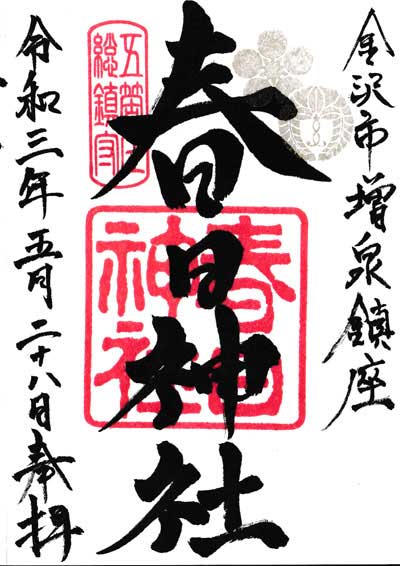 金沢市増泉鎮座
春日神社
春日神社
総鎮守
令和三年五月二十八日奉拝